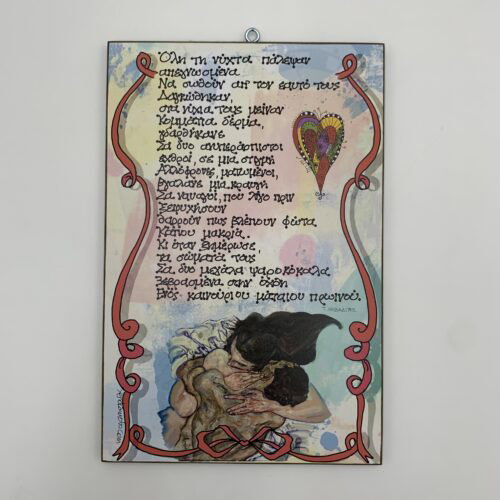 Όλη τη νύχτα πάλεψαν
απεγνωσμένα
Να σωθούν απ τον εαυτό τους
Δαγκώθηκαν,
στα νύχια τους μείναν
κομμάτια δέρμα,
γδαρθήκανε
Σα δυο ανυπεράσπιστοι
εχθροί, σε μια στιγμή
Αλλόφρονες, ματωμένοι,
βγάλανε μια κραυγή
Σα ναυαγοί, που λίγο πριν
ξεψυχήσουν
θαρρούν πως βλέπουν φώτα
Κάπου μακριά.
Κι όταν ξημέρωσε,
τα σώματά τους
Σα δυο μεγάλα ψαροκόκαλα
Ξεβρασμένα στην όχθη
Ενός καινούριου μάταιου πρωινού.